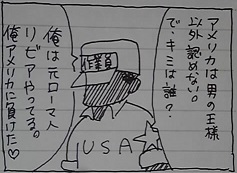 アメリカは男の王様
以外認めない。
で、キミは誰?
作業員
俺は元ローマ人
リビアやってる。
俺アメリカに負けた♡
USA